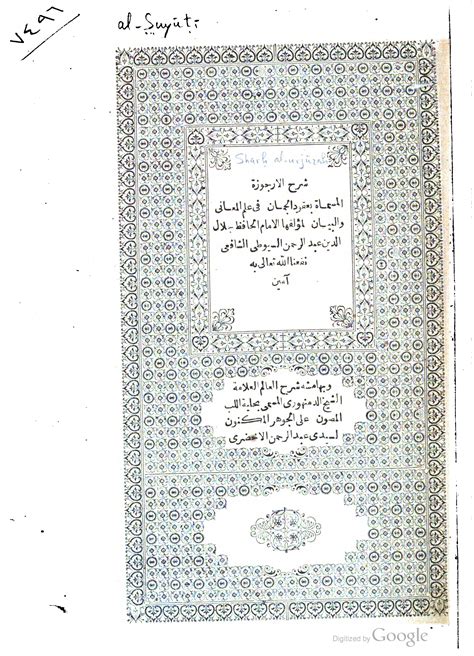 ٧٤٩٦
al-Suyūṭī
Sharḥ al-urjūzah
شرح الارجوزة
المسماة بعقود الجمان فى علم المعانى
والبيان لمؤلفها الامام الحافظ جلال
الدين عبد الرحمن السيوطى الشافعى
نفعنا الله تعالى به
آمين
وبهامشه شرح العالم العلامة
الشيخ الدمنهورى المسمى بحلية اللب
المصون على الجوهر المكنون
لسيدى عبد الرحمن الاخضرى
Digitized by Google